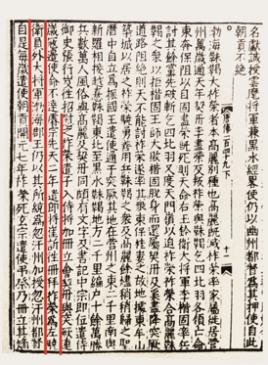 名獻誠授雲麾將軍兼黑水經略使仍以幽州都督為其押使自此
朝貢不絕
渤海靺鞨大祚榮者本高麗別種也高麗既滅祚榮率家屬徙居營
州萬歲通天年契丹李盡榮反叛祚榮與靺鞨乞四比羽各領亡命
東奔保阻以自固盡榮既死則天命右玉鈐衛大將軍李楷固率兵
討其餘黨先破斬乞四比羽又度天門嶺以迫祚榮祚榮合高麗靺
鞨之眾以拒楷固王師大敗楷固脫身而還屬契丹及奚盡降突厥
道路阻絕則天不能討祚榮遂率其眾東保桂婁之故地據東牟山
築城以居之祚榮驍勇善用兵靺鞨之眾及高麗餘燼稍稍歸之聖
曆中自立為振國王遣使通于突厥其地在營州之東二千里南與
新羅相接越熹靺鞨東北至黑水靺鞨地方二千里編戶十餘萬勝
兵數萬人風俗與高麗及契丹同頗有文字及書記中宗即位遣侍
御史張行岌往招慰之祚榮遣子入侍將加冊立會契丹與突厥連
歲寇邊使命不達睿宗先天二年遣郎將崔訢往冊拜祚榮為左驍
衛員外大將軍渤海郡王仍以其所統為忽汗州加授忽汗州都督
自是每歲遣使朝貢開元七年祚榮死玄宗遣使弔祭乃冊立其嫡